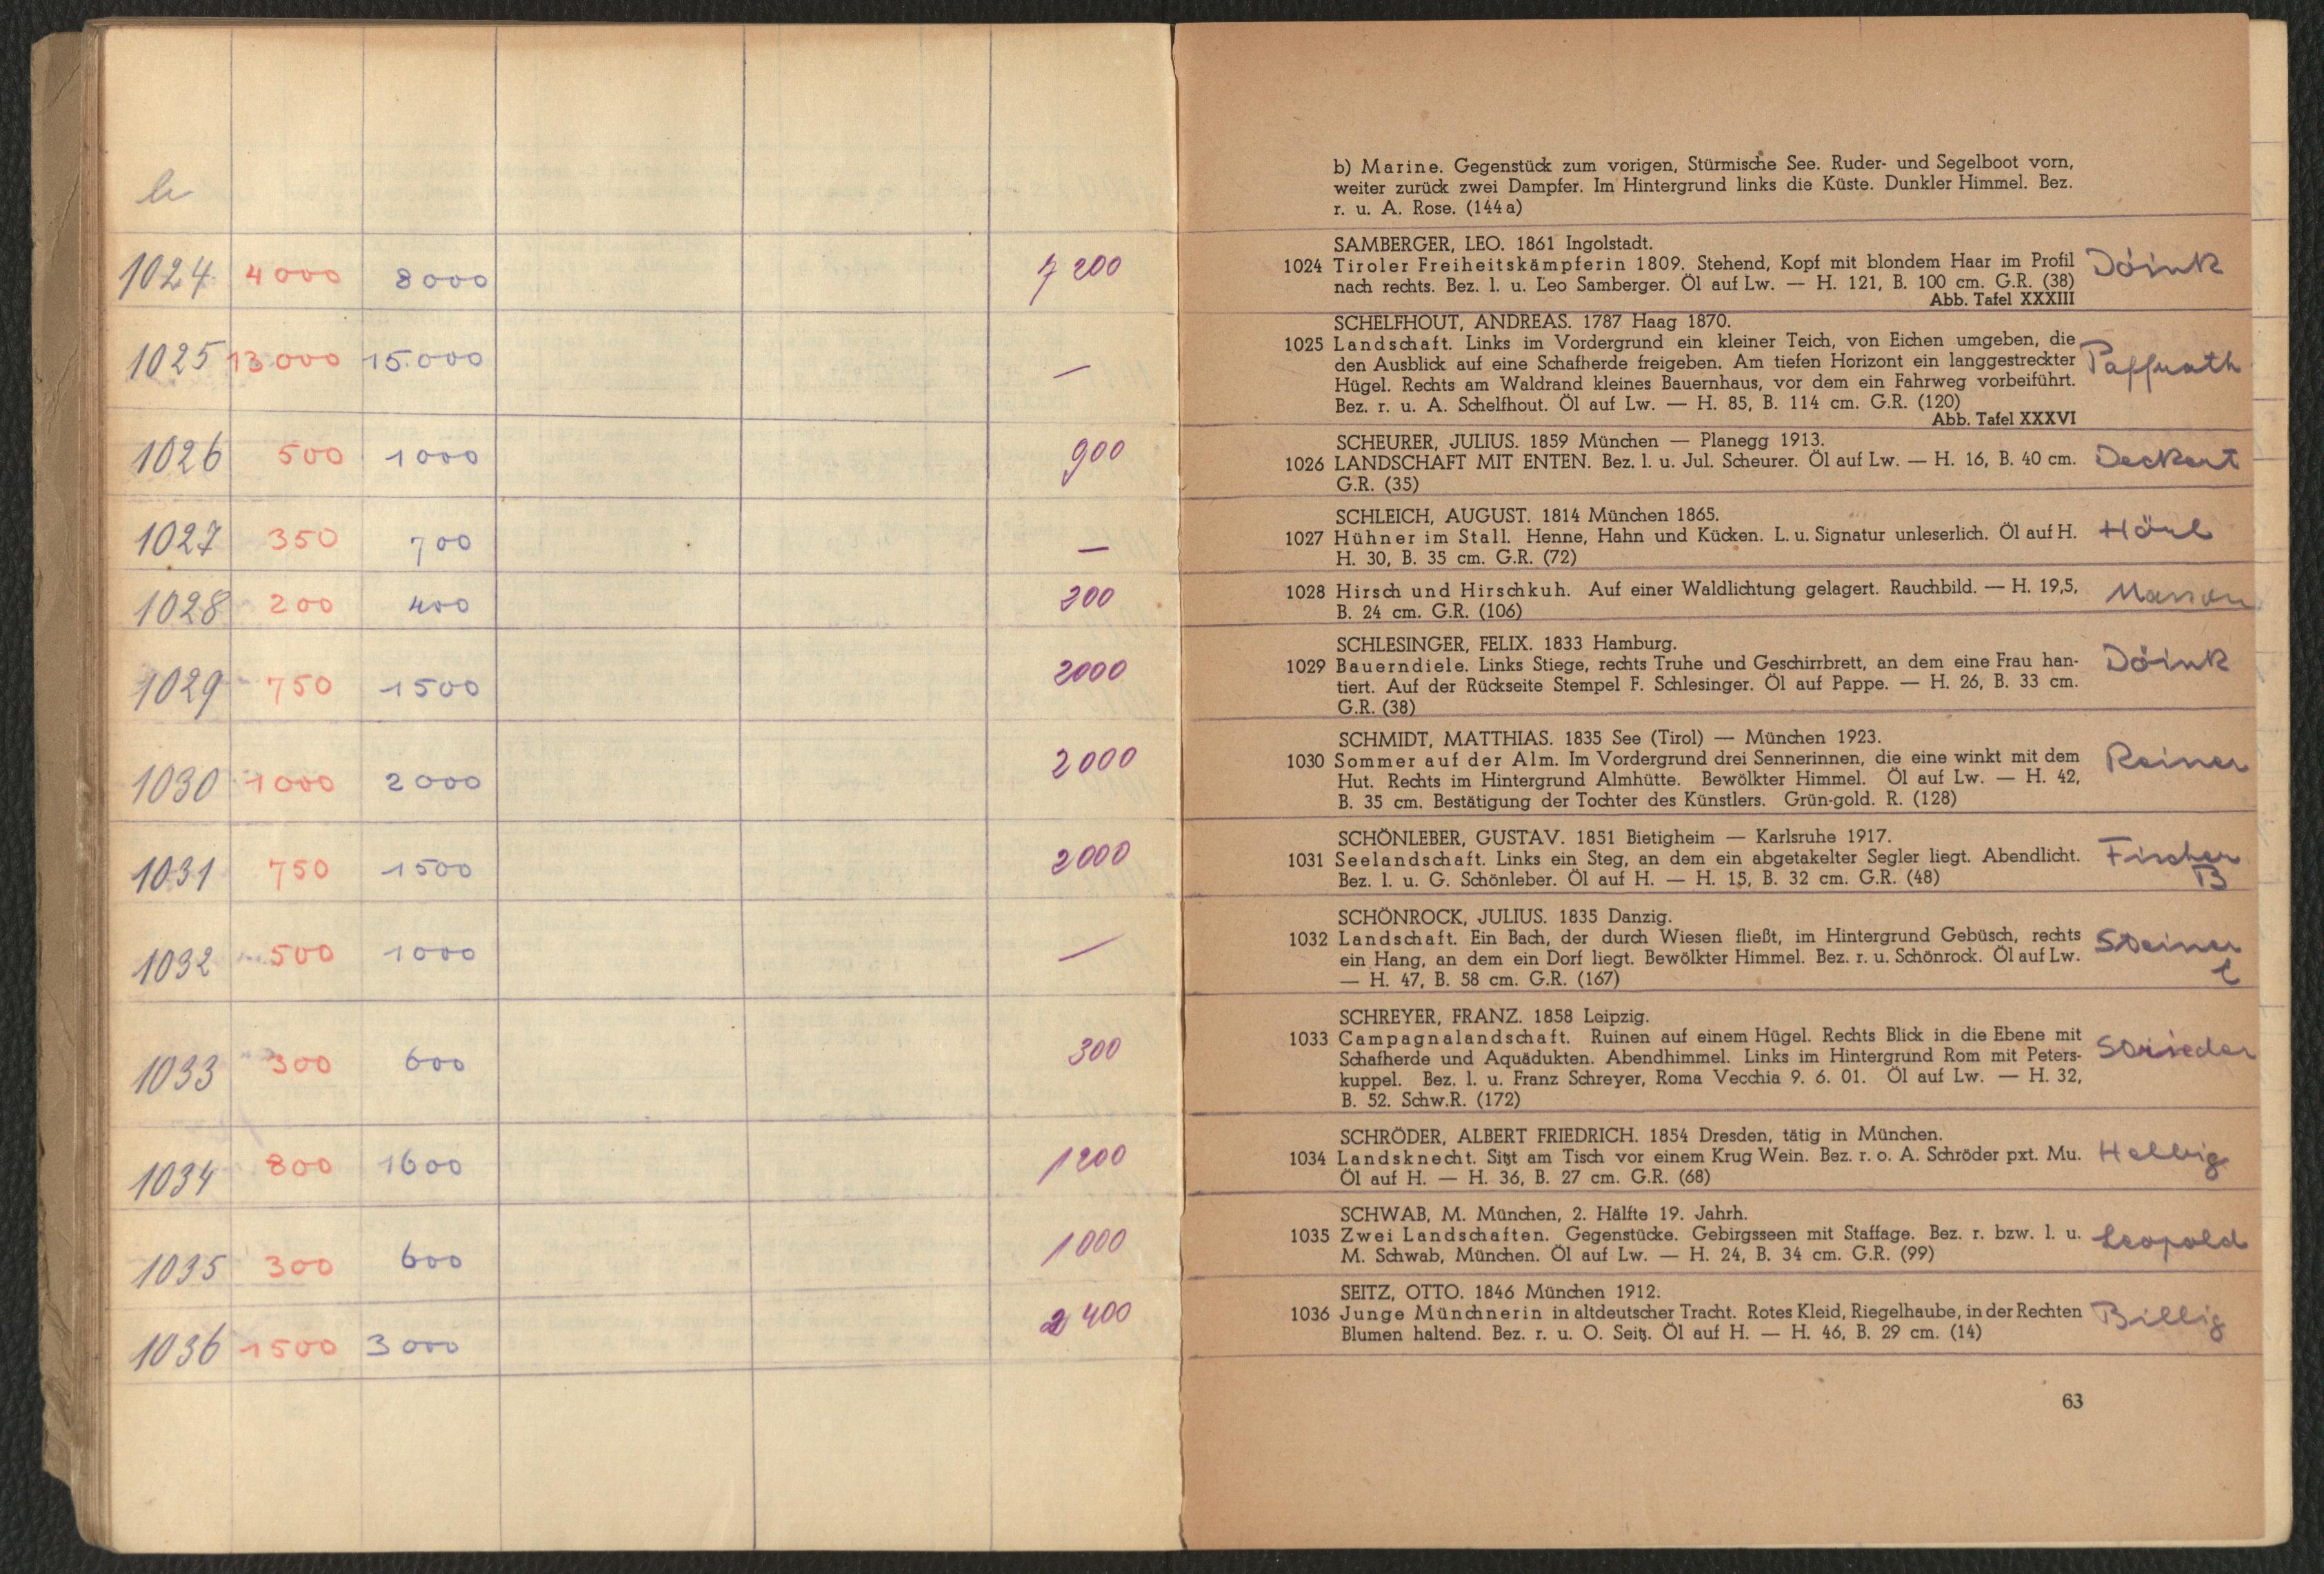 b
1024 4000 8000 7200
1025 13000 15.000 —
1026 500 1000 900
1027 350 700 —
1028 200 400 200
1029 750 1500 2000
1030 1000 2000 2000
1031 750 1500 2000
1032 500 1000 —
1033 300 600 300
1034 800 1600 1200
1035 300 600 1000
1036 1500 3000 2400
b) Marine. Gegenstück zum vorigen, Stürmische See. Ruder- und Segelboot vorn,
weiter zurück zwei Dampfer. Im Hintergrund links die Küste. Dunkler Himmel. Bez.
r. u. A. Rose. (144a)
SAMBERGER, LEO. 1861 Ingolstadt.
1024 Tiroler Freiheitskämpferin 1809. Stehend, Kopf mit blondem Haar im Profil
nach rechts. Bez. l. u. Leo Samberger. Öl auf Lw. — H. 121, B. 100 cm. G.R. (38)
Abb. Tafel XXXIII
SCHELFHOUT, ANDREAS. 1787 Haag 1870.
1025 Landschaft. Links im Vordergrund ein kleiner Teich, von Eichen umgeben, die
den Ausblick auf eine Schafherde freigeben. Am tiefen Horizont ein langgestreckter
Paffrath
Hügel. Rechts am Waldrand kleines Bauernhaus, vor dem ein Fahrweg vorbeiführt.
Bez. r. u. A. Schelfhout. Öl auf Lw. — H. 85, B. 114 cm. G.R. (120)
Abb. Tafel XXXVI
SCHEURER, JULIUS. 1859 München — Planegg 1913.
1026 LANDSCHAFT MIT ENTEN. Bez. l. u. Jul. Scheurer. Öl auf Lw. — H. 16, B. 40 cm. Deckert
G.R. (35)
SCHLEICH, AUGUST. 1814 München 1865.
1027 Hühner im Stall. Henne, Hahn und Kücken. L. u. Signatur unleserlich. Öl auf H. Hörl
H. 30, B. 35 cm. G.R. (72)
1028 Hirsch und Hirschkuh. Auf einer Waldlichtung gelagert. Rauchbild. — H. 19,5,
B. 24 cm. G.R. (106)
SCHLESINGER, FELIX. 1833 Hamburg.
1029 Bauerndiele. Links Stiege, rechts Truhe und Geschirrbrett, an dem eine Frau han-
tiert. Auf der Rückseite Stempel F. Schlesinger. Öl auf Pappe. — H. 26, B. 33 cm.
G.R. (38)
SCHMIDT, MATTHIAS. 1835 See (Tirol) — München 1923.
1030 Sommer auf der Alm. Im Vordergrund drei Sennerinnen, die eine winkt mit dem Reiner
Hut. Rechts im Hintergrund Almhütte. Bewölkter Himmel. Öl auf Lw. — H. 42,
B. 35 cm. Bestätigung der Tochter des Künstlers. Grün-gold. R. (128)
SCHÖNLEBER, GUSTAV. 1851 Bietigheim — Karlsruhe 1917.
1031 Seelandschaft. Links ein Steg, an dem ein abgetakelter Segler liegt. Abendlicht. Fischer
Bez. l. u. G. Schönleber. Öl auf H. — H. 15, B. 32 cm. G.R. (48) B
SCHÖNROCK, JULIUS. 1835 Danzig.
1032 Landschaft. Ein Bach, der durch Wiesen fließt, im Hintergrund Gebüsch, rechts Steiner
ein Hang, an dem ein Dorf liegt. Bewölkter Himmel. Bez. r. u. Schönrock. Öl auf Lw.
— H. 47, B. 58 cm. G.R. (167)
SCHREYER, FRANZ. 1858 Leipzig.
1033 Campagnalandschaft. Ruinen auf einem Hügel. Rechts Blick in die Ebene mit
Schafherde und Aquädukten. Abendhimmel. Links im Hintergrund Rom mit Peters- Strieder
kuppel. Bez. l. u. Franz Schreyer, Roma Vecchia 9. 6. 01. Öl auf Lw. — H. 32,
B. 52. Schw.R. (172)
SCHRÖDER, ALBERT FRIEDRICH. 1854 Dresden, tätig in München.
1034 Landsknecht. Sitzt am Tisch vor einem Krug Wein. Bez. r. o. A. Schröder pxt. Mu. Helbig
Öl auf H. — H. 36, B. 27 cm. G.R. (68)
SCHWAB, M. München, 2. Hälfte 19. Jahrh.
1035 Zwei Landschaften. Gegenstücke. Gebirgsseen mit Staffage. Bez. r. bzw. l. u. Leopold
M. Schwab, München. Öl auf Lw. — H. 24, B. 34 cm. G.R. (99)
SEITZ, OTTO. 1846 München 1912.
1036 Junge Münchnerin in altdeutscher Tracht. Rotes Kleid, Riegelhaube, in der Rechten Billig
Blumen haltend. Bez. r. u. O. Seitz. Öl auf H. — H. 46, B. 29 cm. (14)
63